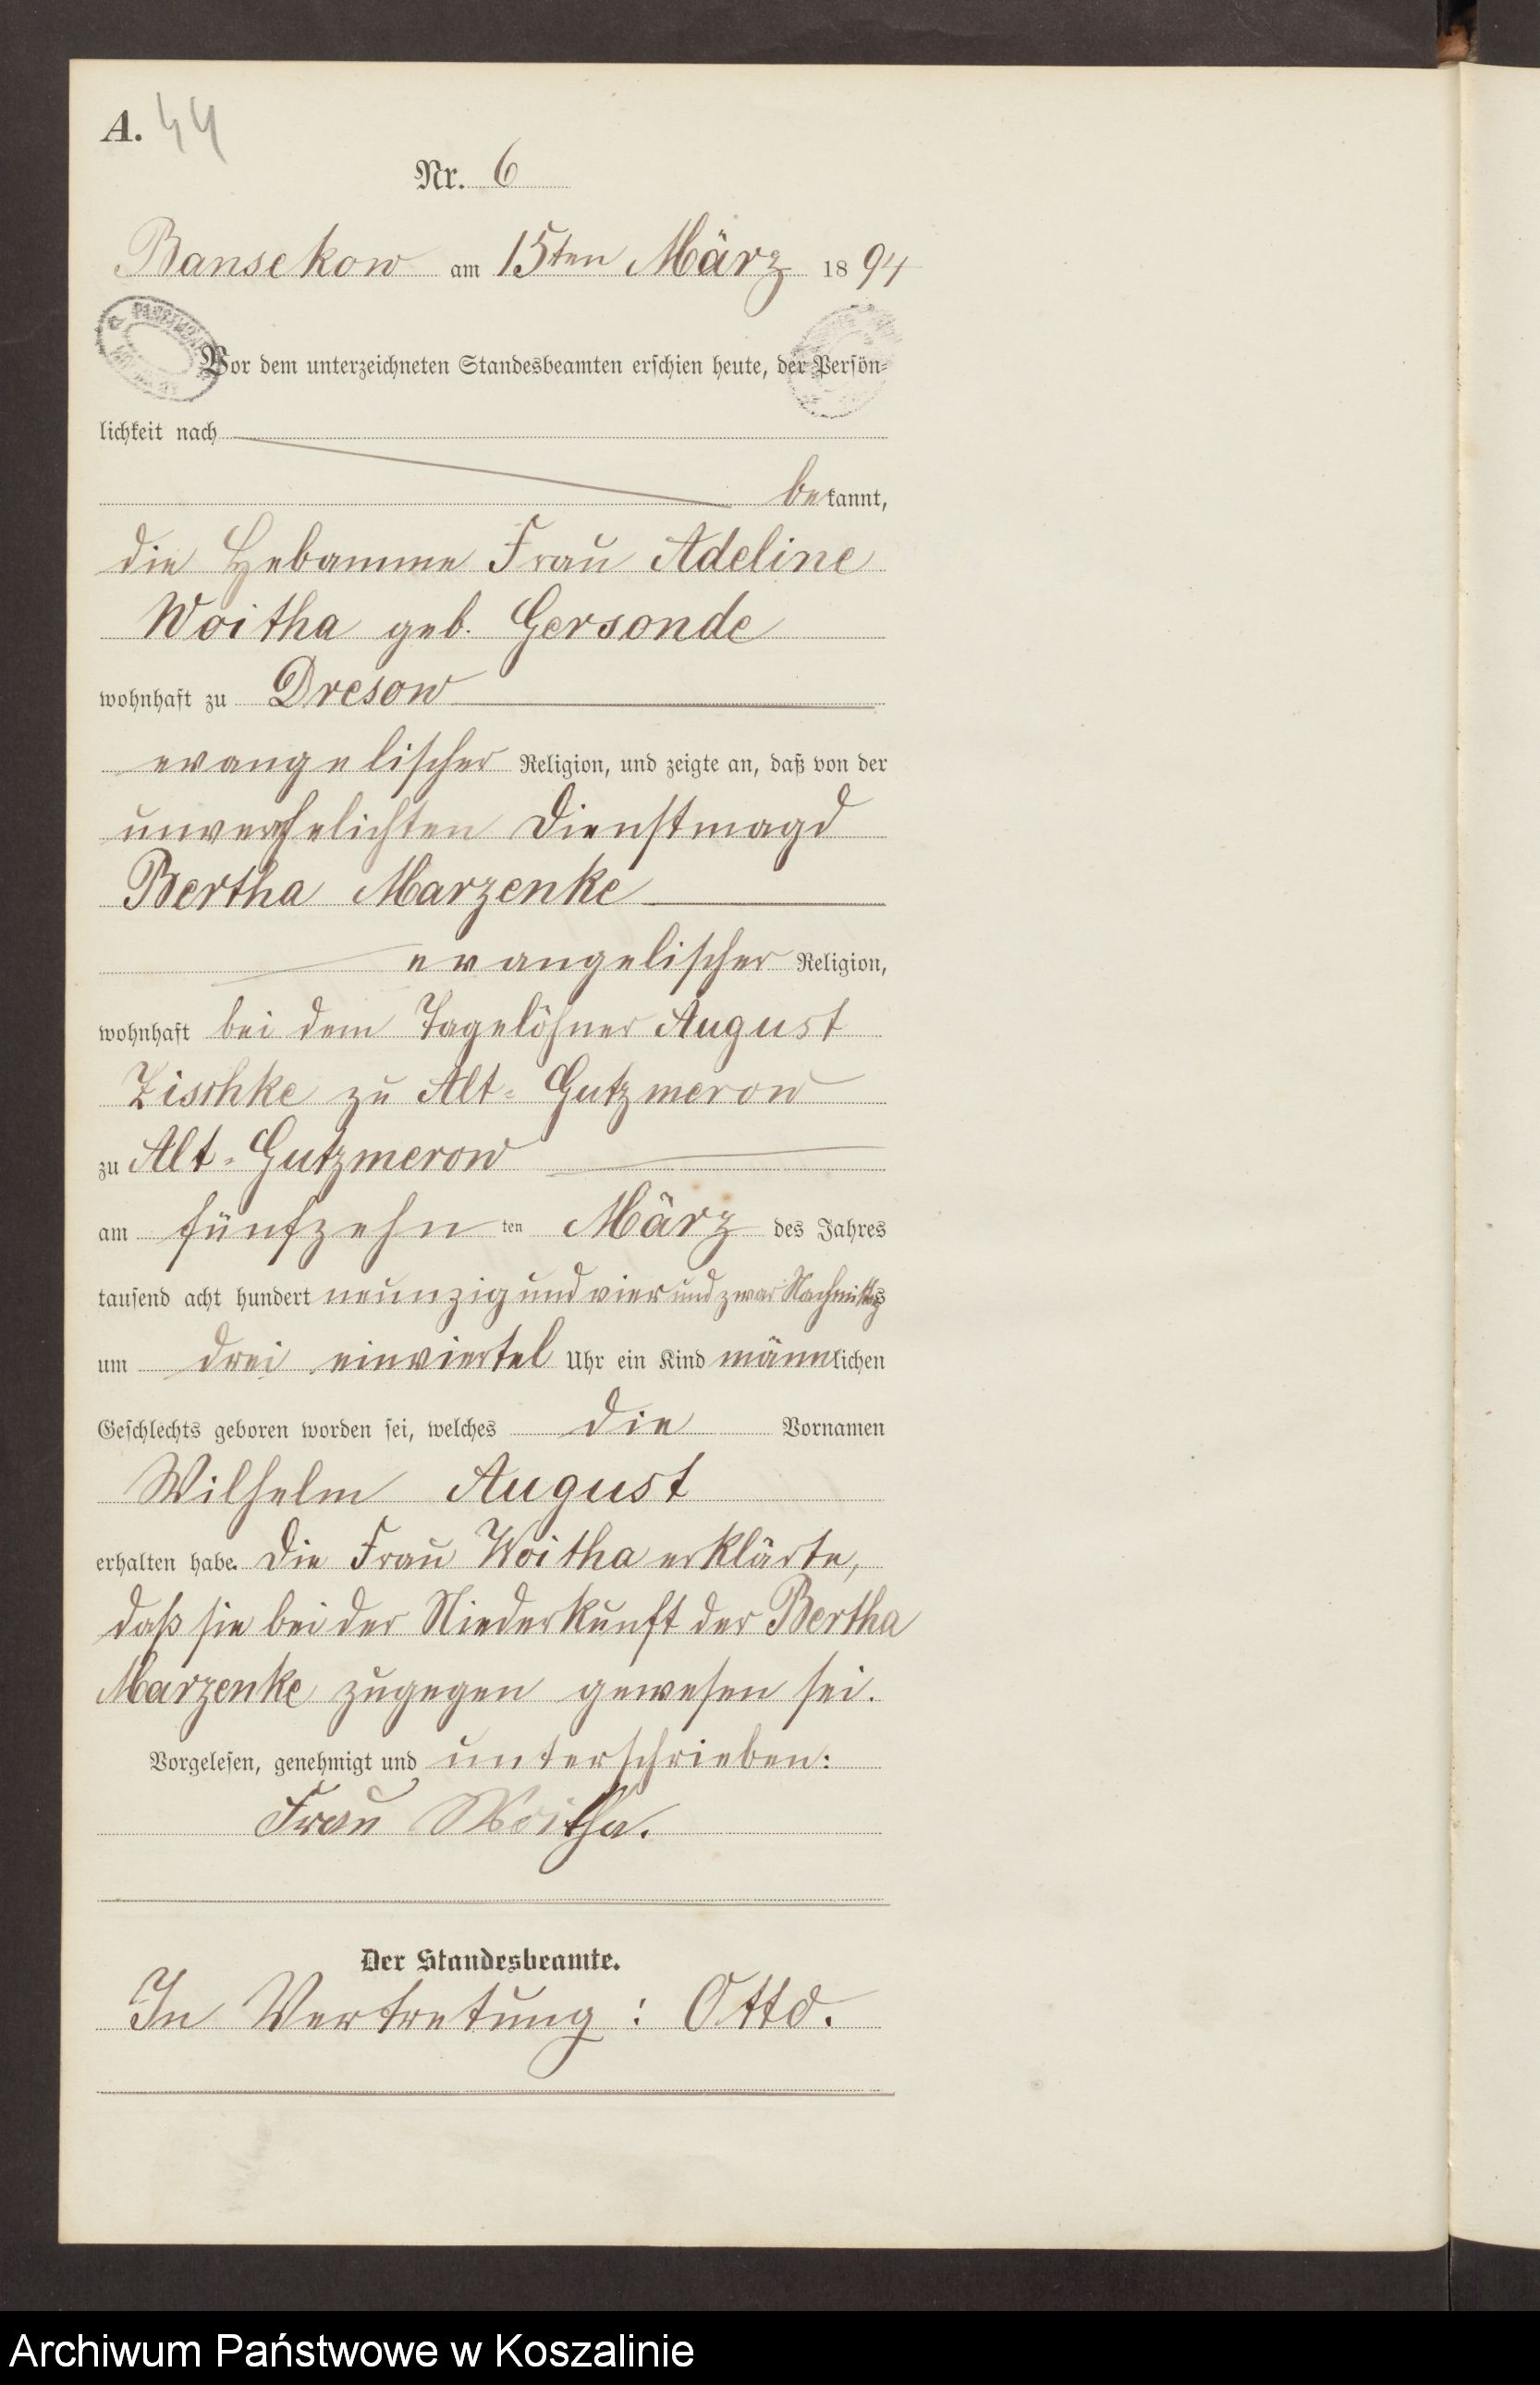 A. 44
Nr. 6
Bansekow am 15ten März 1894
Vor dem unterzeichneten Standesbeamten erschien heute, der Persön-
lichkeit nach
bekannt,
die Hebamme Frau Adeline
Woitha geb. Gersonde
wohnhaft zu Dresow
evangelischer Religion, und zeigte an, daß von der
unverehelichten Dienstmagd
Bertha Marzenke
evangelischer Religion,
wohnhaft bei dem Tagelöhner August
Zischke zu Alt-Gutzmerow
zu Alt-Gutzmerow
am fünfzehn ten März des Jahres
tausend acht hundert neunzig und vier und zwar Nachmittags
um drei einviertel Uhr ein Kind männlichen
Geschlechts geboren worden sei, welches die Vornamen
Wilhelm August
erhalten habe. Die Frau Woitha erklärte,
daß sie bei der Niederkunft der Bertha
Marzenke zugegen gewesen sei.
Vorgelesen, genehmigt und unterschrieben:
Frau Woitha.
Der Standesbeamte.
In Vertretung: Otto.
Archiwum Państwowe w Koszalinie